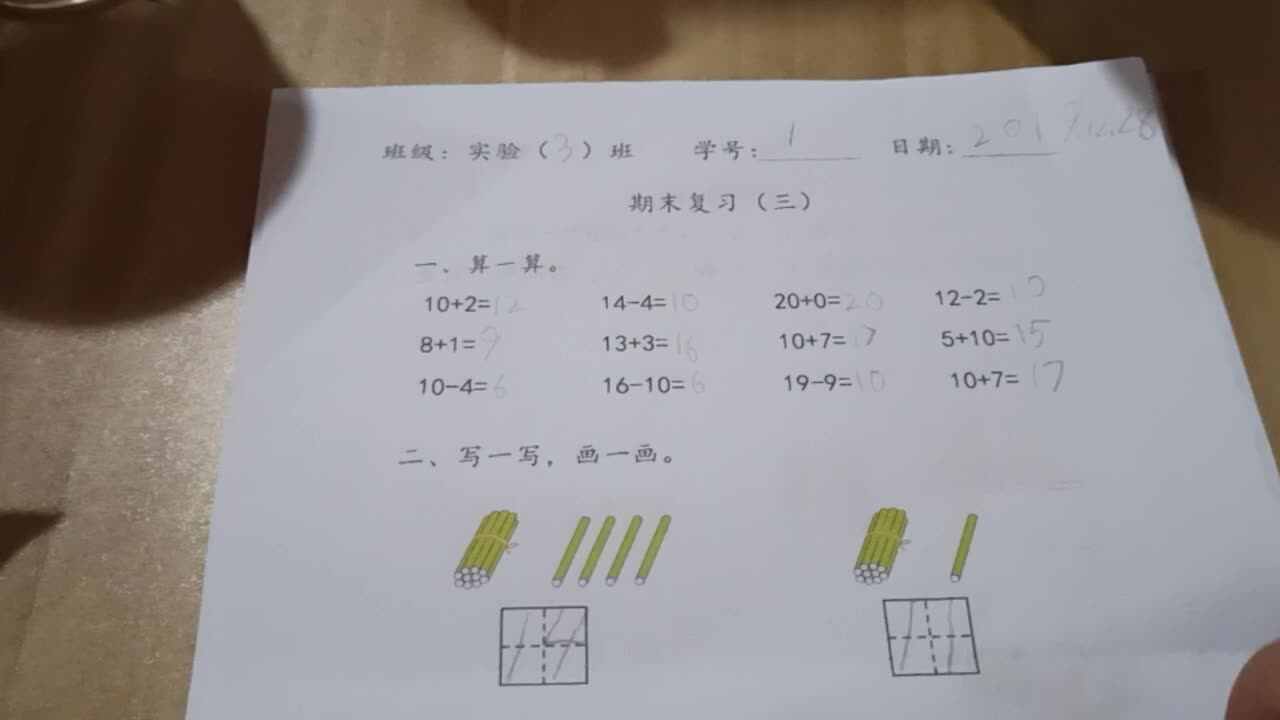 班级：实验（3）班 学号：1 日期：2017.12.28
期末复习（三）
一、算一算。
10+2=12 14-4=10 20+0=20 12-2=10
8+1=9 13+3=16 10+7=17 5+10=15
10-4=6 16-10=6 19-9=10 10+7=17
二、写一写，画一画。
14 11